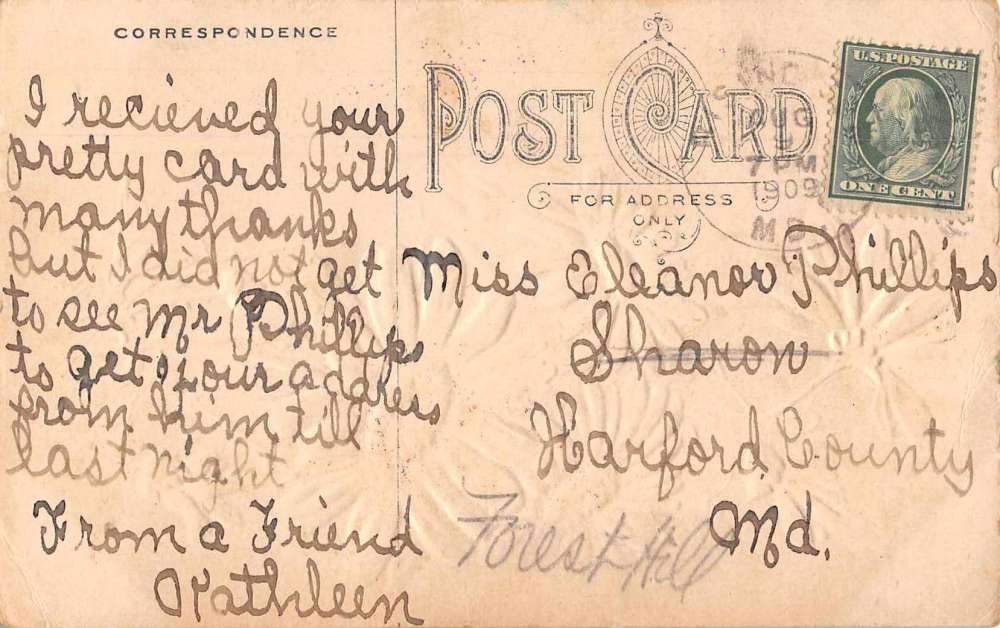 CORRESPONDENCE
I recieved your
pretty card with
many thanks
but I did not get
to see Mr Phillips
to get your address
from him till
last night
From a Friend
Kathleen
POST CARD
FOR ADDRESS
ONLY
AUG
9
7 PM
1909
MD
U.S. POSTAGE
ONE CENT
Miss Eleanor Phillips
Sharon
Harford County
Md.
Forest Hill